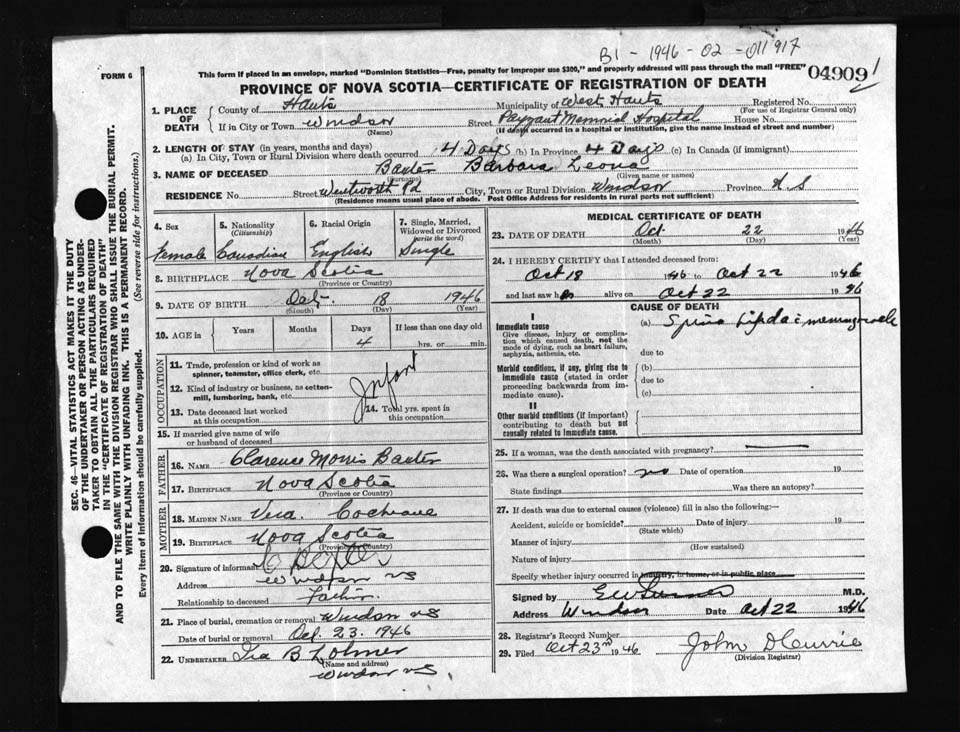 B1 - 1946 - 02 - 011917
FORM 6
This form if placed in an envelope, marked "Dominion Statistics—Free, penalty for improper use $300," and properly addressed will pass through the mail "FREE"
04909
PROVINCE OF NOVA SCOTIA—CERTIFICATE OF REGISTRATION OF DEATH
1. PLACE OF DEATH
County of Hants Municipality of West Hants Registered No.
(For use of Registrar General only)
If in City or Town Windsor Street Payzant Memorial Hospital House No.
(Name) (If death occurred in a hospital or institution, give the name instead of street and number)
2. LENGTH OF STAY (in years, months and days)
(a) In City, Town or Rural Division where death occurred 4 Days (b) In Province 4 Days (c) In Canada (if immigrant)
3. NAME OF DECEASED Baxter Barbara Leona
(Surname) (Given name or names)
RESIDENCE No. Street Wentworth Rd City, Town or Rural Division Windsor Province N.S
(Residence means usual place of abode. Post Office Address for residents in rural parts not sufficient)
4. Sex 5. Nationality (Citizenship) 6. Racial Origin 7. Single, Married, Widowed or Divorced (write the word)
Female Canadian English Single
8. BIRTHPLACE Nova Scotia
(Province or Country)
9. DATE OF BIRTH Oct. 18 1946
(Month) (Day) (Year)
10. AGE in Years Months Days If less than one day old
4 hrs. or min.
OCCUPATION
11. Trade, profession or kind of work as spinner, teamster, office clerk, etc.
12. Kind of industry or business, as cotten-mill, lumbering, bank, etc.
Infant
13. Date deceased last worked at this occupation
14. Total yrs. spent in this occupation
15. If married give name of wife or husband of deceased
FATHER
16. NAME Clarence Morris Baxter
17. BIRTHPLACE Nova Scotia
(Province or Country)
MOTHER
18. MAIDEN NAME Vera Cochrane
19. BIRTHPLACE Nova Scotia
(Province or Country)
20. Signature of informant
Address Windsor NS
Relationship to deceased Father
21. Place of burial, cremation or removal Windsor NS
Date of burial or removal Oct. 23. 1946
22. UNDERTAKER Ira B
(Name and address)
Windsor NS
MEDICAL CERTIFICATE OF DEATH
23. DATE OF DEATH Oct. 22 1946
(Month) (Day) (Year)
24. I HEREBY CERTIFY that I attended deceased from:
Oct 18 1946 to Oct 22 1946
and last saw her alive on Oct 22 1946
CAUSE OF DEATH
I
Immediate cause
Give disease, injury or complication which caused death, not the mode of dying, such as heart failure, asphyxia, asthenia, etc.
(a) Spina Bifida
due to
Morbid conditions, if any, giving rise to immediate cause (stated in order proceeding backwards from immediate cause).
(b)
due to
(c)
II
Other morbid conditions (if important) contributing to death but not causally related to immediate cause.
25. If a woman, was the death associated with pregnancy?
26. Was there a surgical operation? no Date of operation 19
State findings Was there an autopsy?
27. If death was due to external causes (violence) fill in also the following:—
Accident, suicide or homicide? Date of injury 19
(State which)
Manner of injury
(How sustained)
Nature of injury
Specify whether injury occurred in industry, in home, or in public place
Signed by M.D.
Address Windsor Date Oct 22 1946
28. Registrar's Record Number
29. Filed Oct 23rd 1946 John D Currie
(Division Registrar)
SEC. 46—VITAL STATISTICS ACT MAKES IT THE DUTY
OF THE UNDERTAKER OR PERSON ACTING AS UNDER-
TAKER TO OBTAIN ALL THE PARTICULARS REQUIRED
IN THE "CERTIFICATE OF REGISTRATION OF DEATH"
AND TO FILE THE SAME WITH THE DIVISION REGISTRAR WHO SHALL ISSUE THE BURIAL PERMIT.
WRITE PLAINLY WITH UNFADING INK. THIS IS A PERMANENT RECORD.
Every item of information should be carefully supplied. (See reverse side for instructions.)